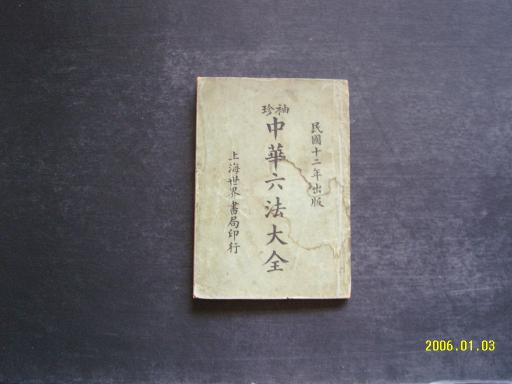 民國十二年出版
袖珍
中華六法大全
上海世界書局印行
2006.01.03